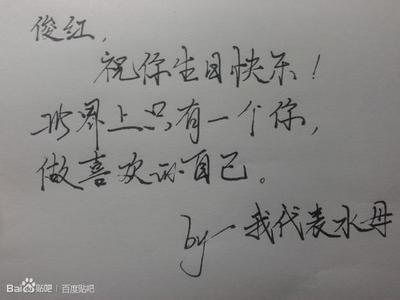 俊红，
祝你生日快乐！
世界上只有一个你，
做喜欢的自己。
by 我代表水母
Bai贴吧 | 百度贴吧